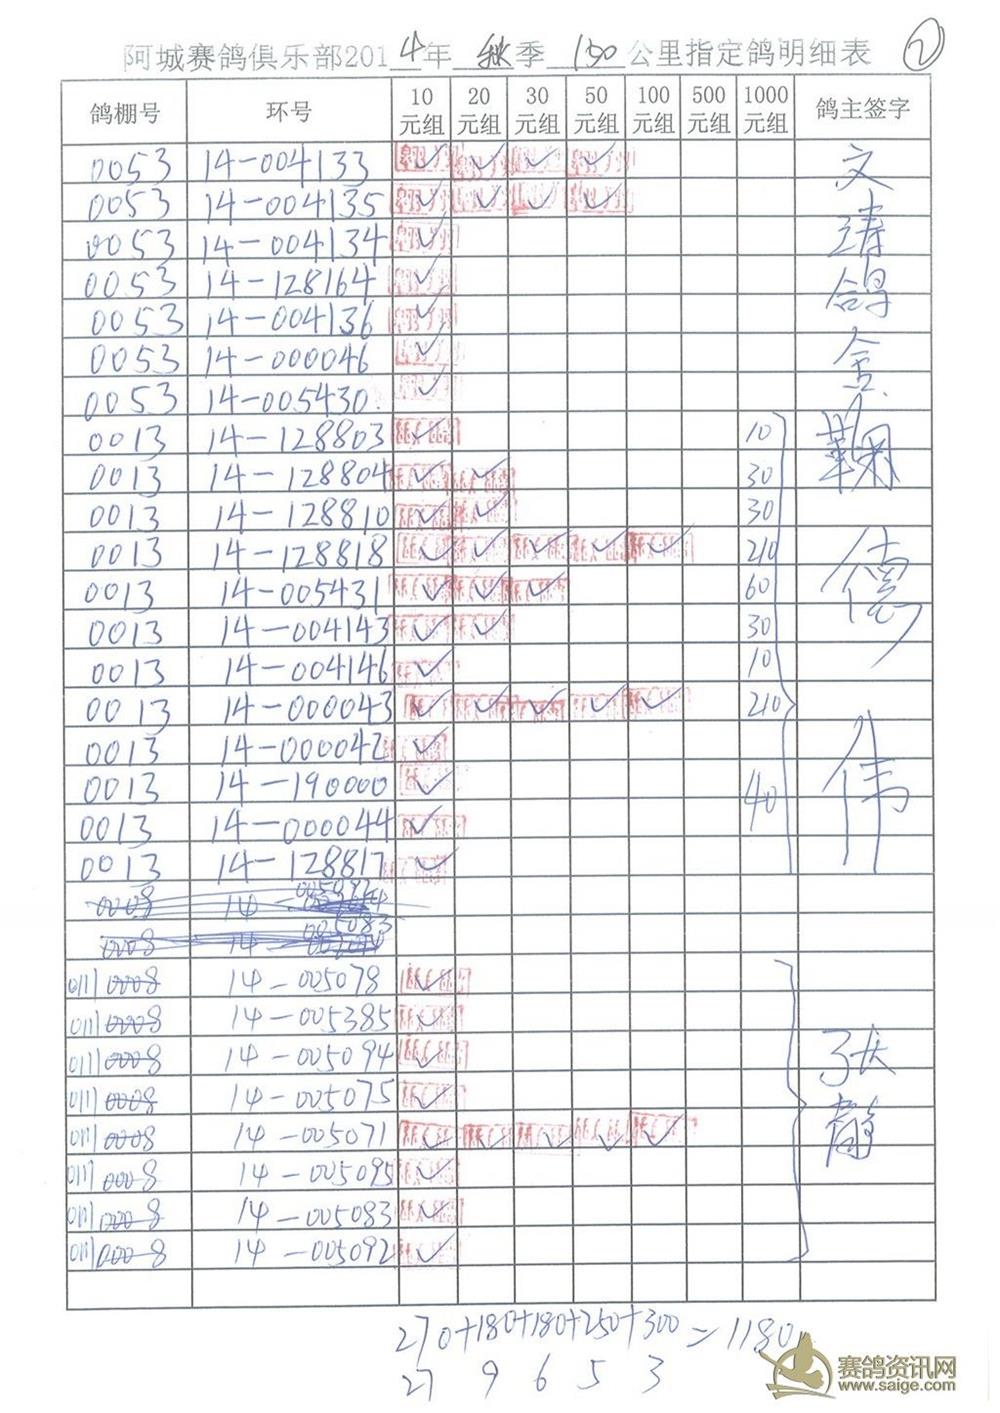 阿城赛鸽俱乐部2014年 秋季 130公里指定鸽明细表 ②
鸽棚号 环号 10元组 20元组 30元组 50元组 100元组 500元组 1000元组 鸽主签字
0053 14-004133 ✓ ✓ ✓ ✓ 文
0053 14-004135 ✓ ✓ ✓ ✓
0053 14-004134 ✓
0053 14-128164 ✓ 鸽
0053 14-004136 ✓
0053 14-000046 ✓
0053 14-005430 ✓
0013 14-128803 ✓ 10
0013 14-128804 ✓ ✓ 30
0013 14-128810 ✓ ✓ 30
0013 14-128818 ✓ ✓ ✓ ✓ ✓ 210
0013 14-005431 ✓ ✓ ✓ 60
0013 14-004143 ✓ ✓ 30
0013 14-004146 ✓ 10
0013 14-000043 ✓ ✓ ✓ ✓ ✓ 210
0013 14-000042 ✓ 伟
0013 14-190000 ✓ 40
0013 14-000044 ✓
0013 14-128817 ✓
0008 14-005092
0008 14-005083
0111 0008 14-005078 ✓
0111 0008 14-005385 ✓
0111 0008 14-005094 ✓ 张
0111 0008 14-005075 ✓
0111 0008 14-005071 ✓ ✓ ✓ ✓ ✓ 静
0111 0008 14-005095 ✓
0111 0008 14-005083 ✓
0111 0008 14-005092 ✓
270+180+180+250+300=1180
27 9 6 5 3
赛鸽资讯网
www.saige.com